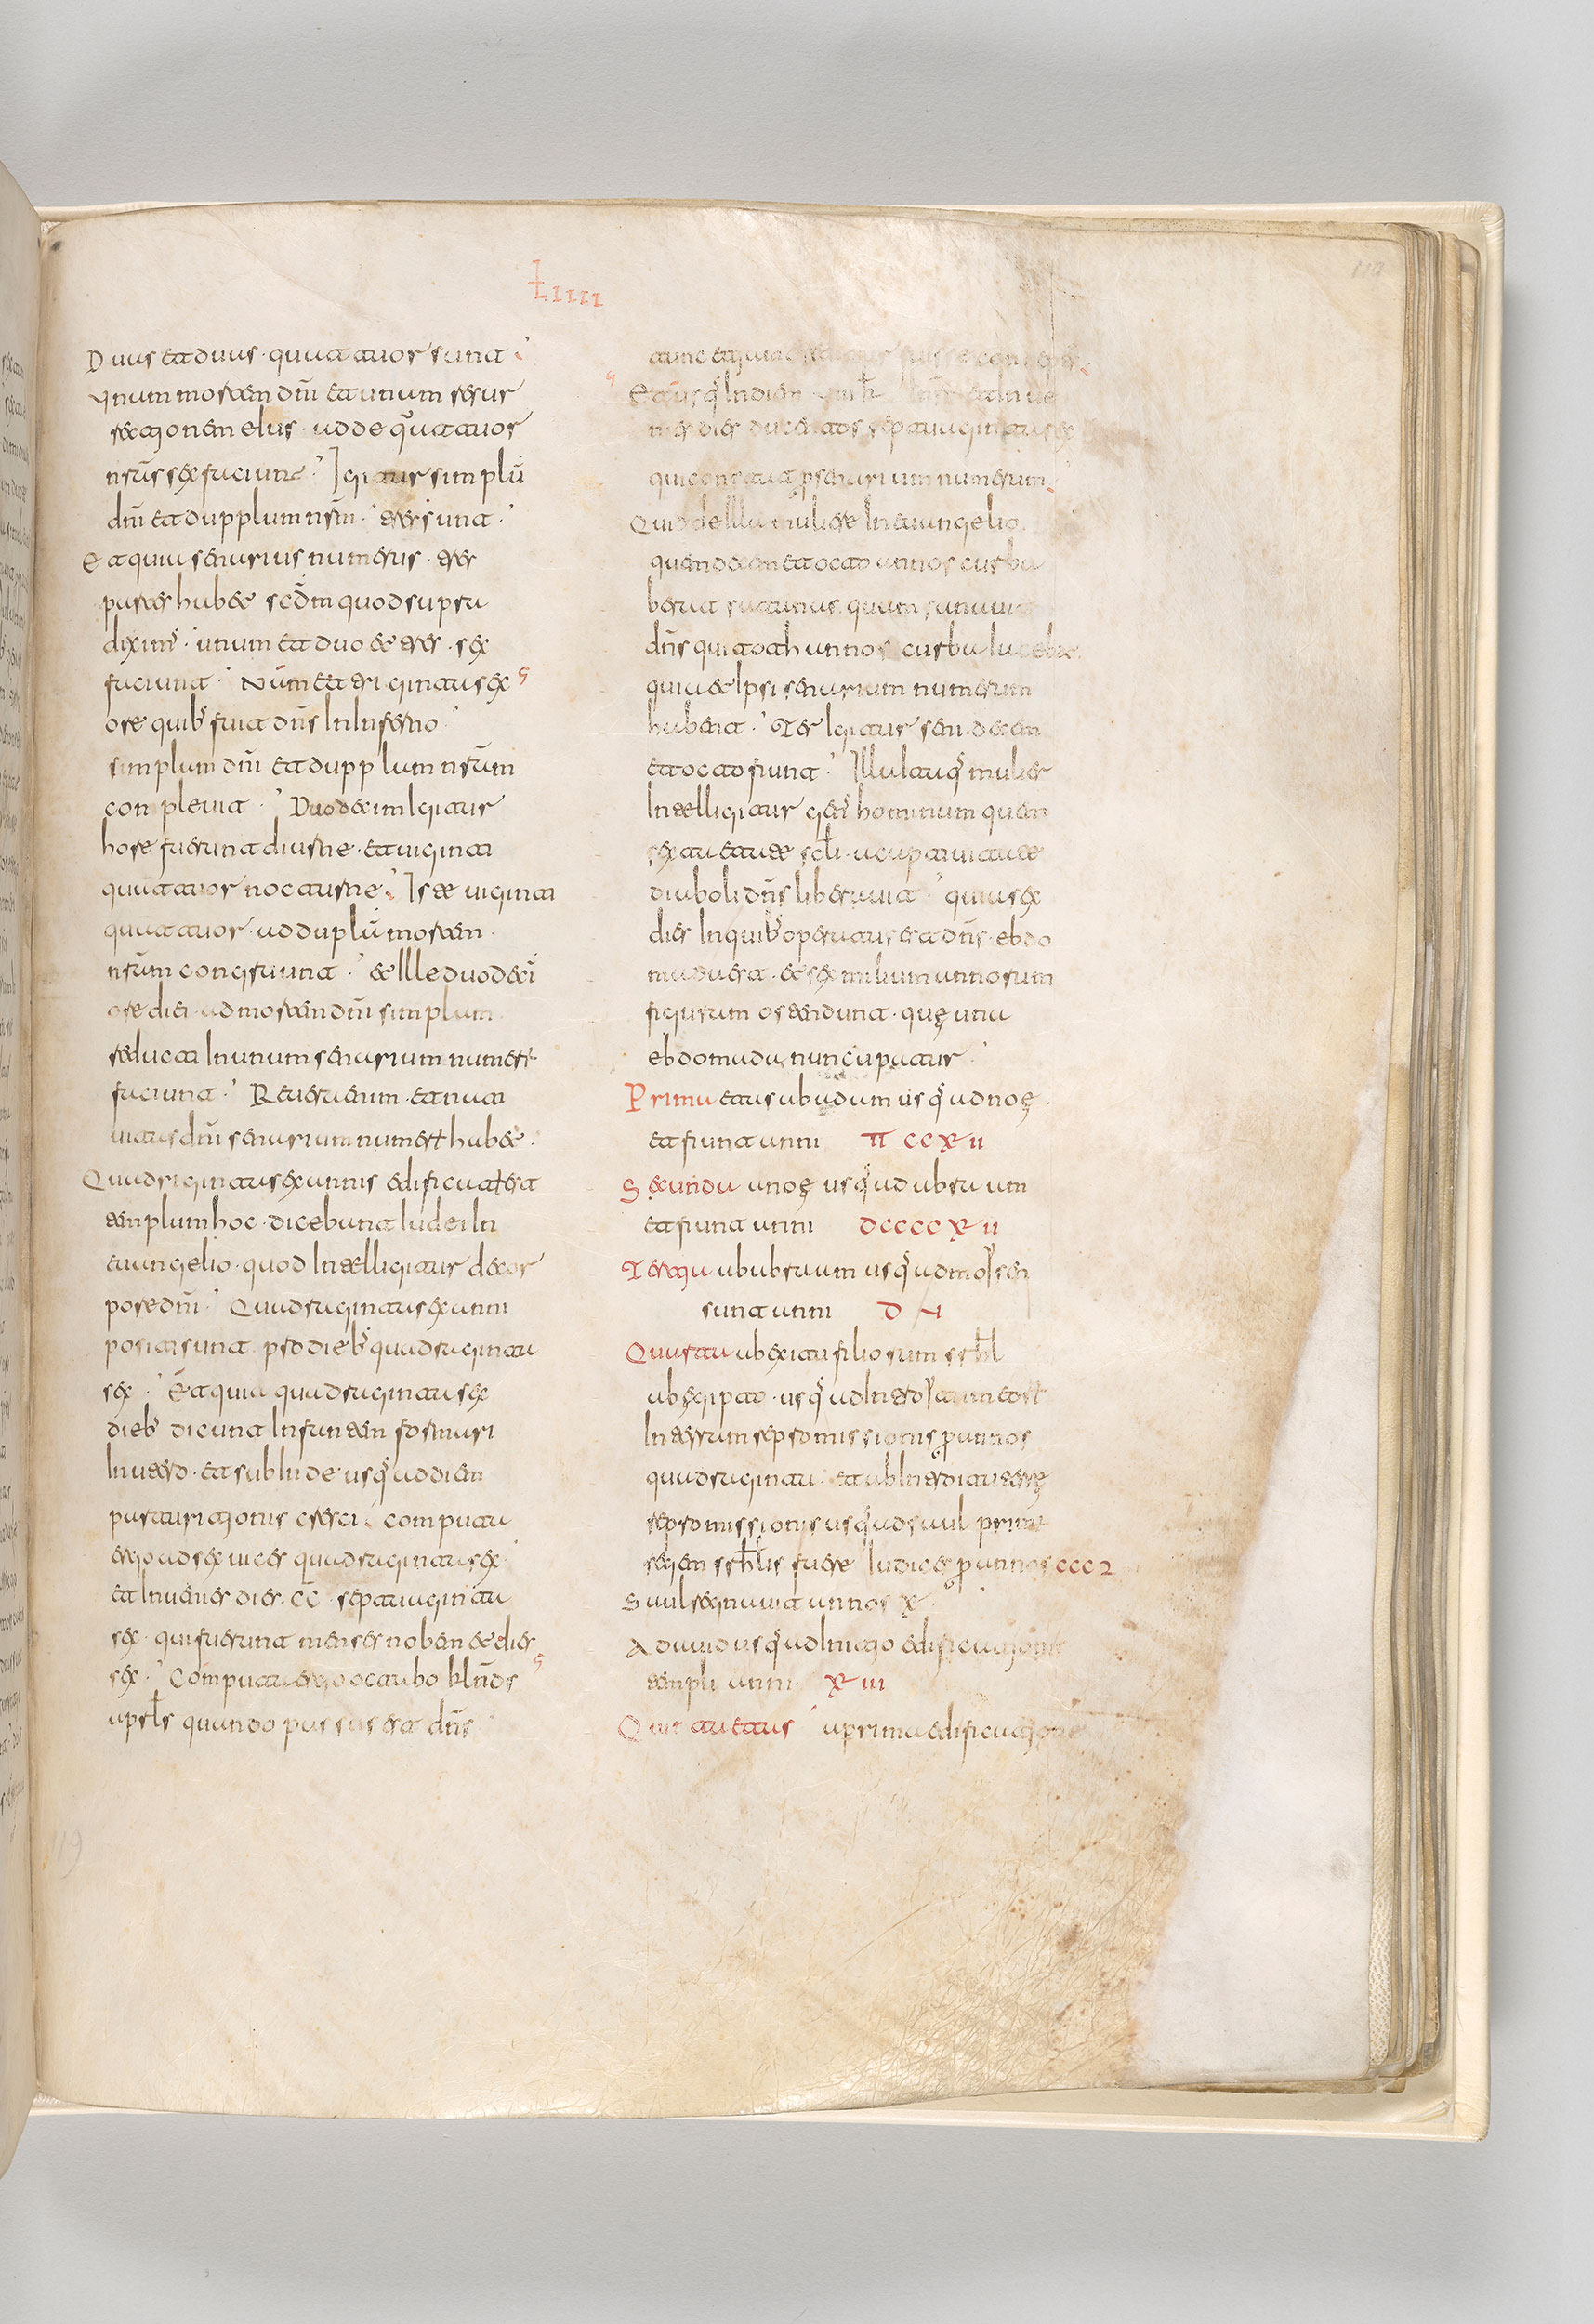 Liiii
Duas et duas · quatuor sunt
unam mortem dn̄i et unum resur
rectionem eius · ad de quatuor
nrās sex faciunt Igitur simplū
dn̄i et dupplum nrm̄ · ter sunt ·
Et quia senarius numerus · ter
partes habet scd̄m quod supra
diximꝰ · unum et duo et tres · sex
faciunt · Nam et triginta sex
ore quibꝰ fuit dn̄s in inferno
simplum dn̄i et dupplum nr̄um
conplevit · Duodecim igitur
hore fuerunt diurne · et viginti
quatuor nocturne Iste viginti
quatuor · ad duplū mortem
nr̄um congruunt · et ille duodeci
ore diei · ad mortem dn̄i simplum
reducti in unum senarium numer
faciunt · et nati
vitas dn̄i senarium numer habet ·
Quadraginta sex annis edificat est
templum hoc · dicebant iudei in
evangelio · quod intelligitur de cor
pore dn̄i · Quadraginta sex anni
positi sunt pro diebꝰ quadraginta
sex · Et quia quadraginta sex
diebꝰ dicunt infantem formari
in utero · et subinde usqꝫ ad diem
parturitionis cresci computa
ergo ad sex vices quadraginta sex
et invenies dies · CC · septuaginta
sex · qui fuerunt menses noben et dies
sex · Computa ergo octabo klnds
aprls quando passus est dn̄s
tunc et
Et usqꝫ in diem
nies dies ducentos septuaginta sex
qui constat ꝑ senarium numerum
Quid de illa muliere in evangelio
quem decem et octo annos curba
berat satanas quam sanavit
dn̄s quia octo annos curba
quia et ipsi senarium numerum
habent · Ter igitur seni decem
et octo fiunt · Illa itaqꝫ mulier
intelligitur genꝰ hominum quem
sexta etate scl̄i · a captivitate
diaboli dn̄s liberavit · quia sex
dies in quibꝰ operatus est dn̄s · ebdo
mada est · et sex milium annorum
figuram ostendunt · quę una
ebdomada nuncupatur ·
Prima etas ab adam usqꝫ ad noę ·
et fiunt anni ĪĪ CCXII
Secunda a noę usqꝫ ad abraam
et fiunt anni DCCCCXII
Tertia ab abraam usqꝫ ad moysen
sunt anni D V
Quarta ab exitu filiorum srhl
ab egipto · usqꝫ ad introitum eorꝫ
in terram repromissionis ꝑ annos
quadraginta · et ab introitu terrę
repromissionis usqꝫ ad saul primū
regem srhlis fuere iudices ꝑ annos CCC
Saul regnavit annos X ·
A david usqꝫ ad initio edificationis
templi anni · XLIII
Quinta etas a prima edificatione